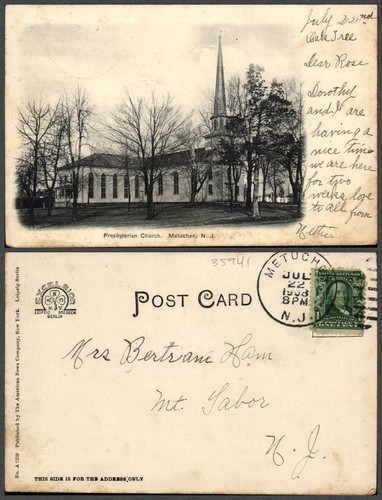 July 22nd
Oak Tree
Dear Rose
Dorothy
and I are
having a
nice time
we are here
for two
weeks love
to all from
Nettie
Presbyterian Church. Metuchen, N. J.
35941
EXCELSIOR
LEIPZIG DRESDEN
BERLIN
POST CARD
METUCHEN
JUL
22
1908
8PM
N.J.
Mrs Bertram Ham
Mt. Tabor
N. J.
No. A 1259 Published by The American News Company, New York. Leipzig-Berlin
THIS SIDE IS FOR THE ADDRESS ONLY